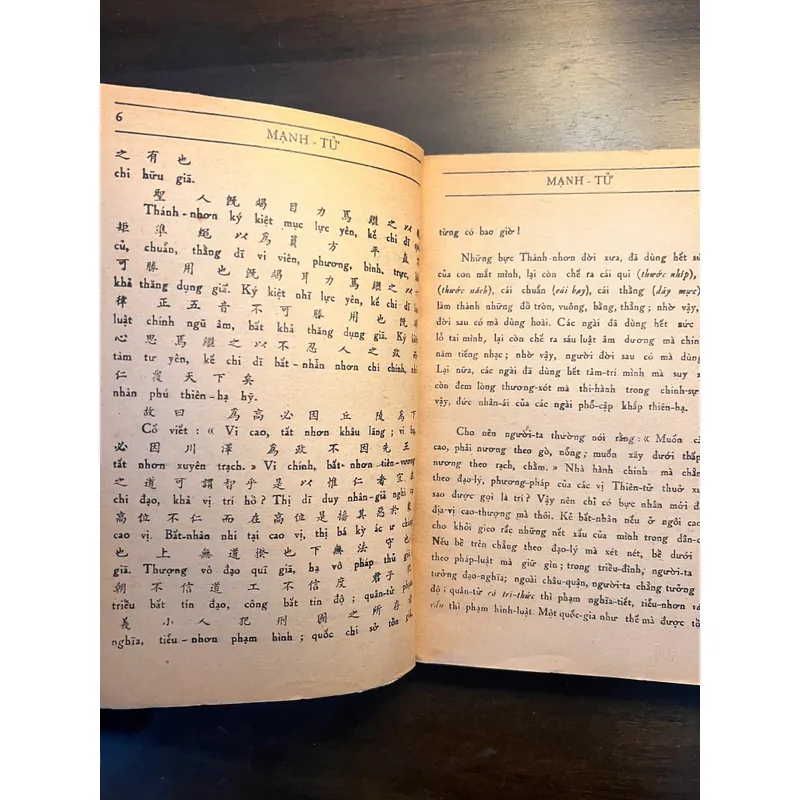 6
MẠNH - TỬ
之 有 也
chi hữu giã.
聖 人 旣 竭 目 力 焉 繼 之 以 規
Thánh-nhơn ký kiệt mục lực yên, kế chi dĩ
矩 準 繩 以 爲 員 方 平 直
củ, chuẩn, thằng dĩ vi viên, phương, bình, trực,
可 勝 用 也 旣 竭 耳 力 焉 繼 之 以
khả thăng dụng giã. Ký kiệt nhĩ lực yên, kế chi dĩ
律 正 五 音 不 可 勝 用 也 旣
luật chính ngũ âm, bất khả thăng dụng giã. Ký
心 思 焉 繼 之 以 不 忍 人 之 政 而
tâm tư yên, kế chi dĩ bất-nhẫn nhơn chi chính, nhi
仁 覆 天 下 矣
nhân phú thiên-hạ hỹ.
故 曰 爲 高 必 因 丘 陵 爲 下
Cố viết : « Vi cao, tất nhơn khâu lăng ; vi hạ,
必 因 川 澤 爲 政 不 因 先 王
tất nhơn xuyên trạch. » Vi chính, bất-nhơn tiên-vương
之 道 可 謂 智 乎 是 以 惟 仁 者 宜 在
chi đạo, khả vị trí hồ ? Thị dĩ duy nhân-giả nghi tại
高 位 不 仁 而 在 高 位 是 播 其 惡 於 衆
cao vị. Bất-nhân nhi tại cao vị, thị bá kỳ ác ư chúng
也 上 無 道 揆 也 下 無 法 守 也
giã. Thượng vô đạo quĩ giã, hạ vô pháp thủ giã,
朝 不 信 道 工 不 信 度 君子
triều bất tín đạo, công bất tín độ ; quân-tử phạm
義 小 人 犯 刑 國 之 所 存 者
nghĩa, tiểu-nhơn phạm hình ; quốc chi sở tồn giả,
MẠNH - TỬ
từng có bao giờ !
Những bực Thánh-nhơn đời xưa, đã dùng hết
của con mắt mình, lại còn chế ra cái qui (thước nhíp),
(thước nách), cái chuẩn (cái bay), cái thằng (dây mực)
làm thành những đồ tròn, vuông, bằng, thẳng ; nhờ vậy,
đời sau có mà dùng hoài. Các ngài đã dùng hết sức
lỗ tai mình, lại còn chế ra sáu luật âm dương mà chỉn
năm tiếng nhạc ; nhờ vậy, người đời sau có mà dùng
Lại nữa, các ngài đã dùng hết tâm-trí mình mà suy
còn đem lòng thương-xót mà thi-hành trong chính-sự
vậy, đức nhân-ái của các ngài phổ-cập khắp thiên-hạ.
Cho nên người-ta thường nói rằng : « Muốn
cao, phải nương theo gò, nổng ; muốn xây dưới thấp
nương theo rạch, chằm. » Nhà hành chính mà chẳn
theo đạo-lý, phương-pháp của các vị Thiên-tử thuở
sao được gọi là trí ? Vậy nên chỉ có bực nhân mới
địa-vị cao-thượng mà thôi. Kẻ bất-nhân nếu ở ngôi cao
cho khỏi gieo rắc những nết xấu của mình trong dân-c
Nếu bề trên chẳng theo đạo-lý mà xét nét, bề dưới
theo pháp-luật mà giữ gìn ; trong triều-đình, người-ta
tưởng đạo-nghĩa ; ngoài châu-quận, người-ta chẳng tưởng
độ ; quân-tử có tri-thức thì phạm nghĩa-tiết, tiểu-nhơn
vấn thì phạm hình-luật. Một quốc-gia như thế mà được